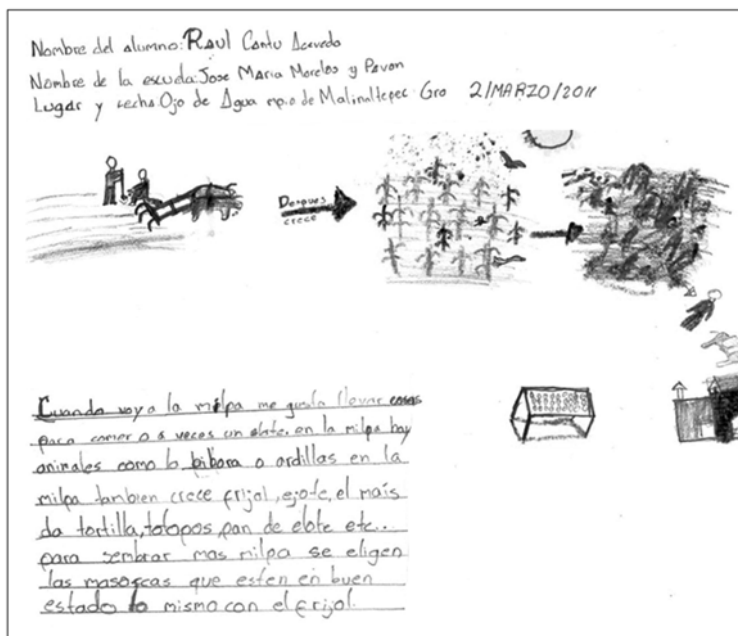 Nombre del alumno: Raul Cantu Acevedo
Nombre de la escuela: Jose Maria Morelos y Pavon
Lugar y fecha Ojo de Agua mp.o de Malinaltepec Gro 2/MARZO/2011
Despues
crece
Cuando voy a la milpa me gusta llevar cosas
para comer o a veces un elote. en la milpa hay
animales como la bibora o ardillas en la
milpa tambien crece frijol, ejote, el mais
da tortilla, totopos, pan de elote etc...
para sembrar mas milpa se eligen
las masorcas que esten en buen
estado lo mismo con el frijol.